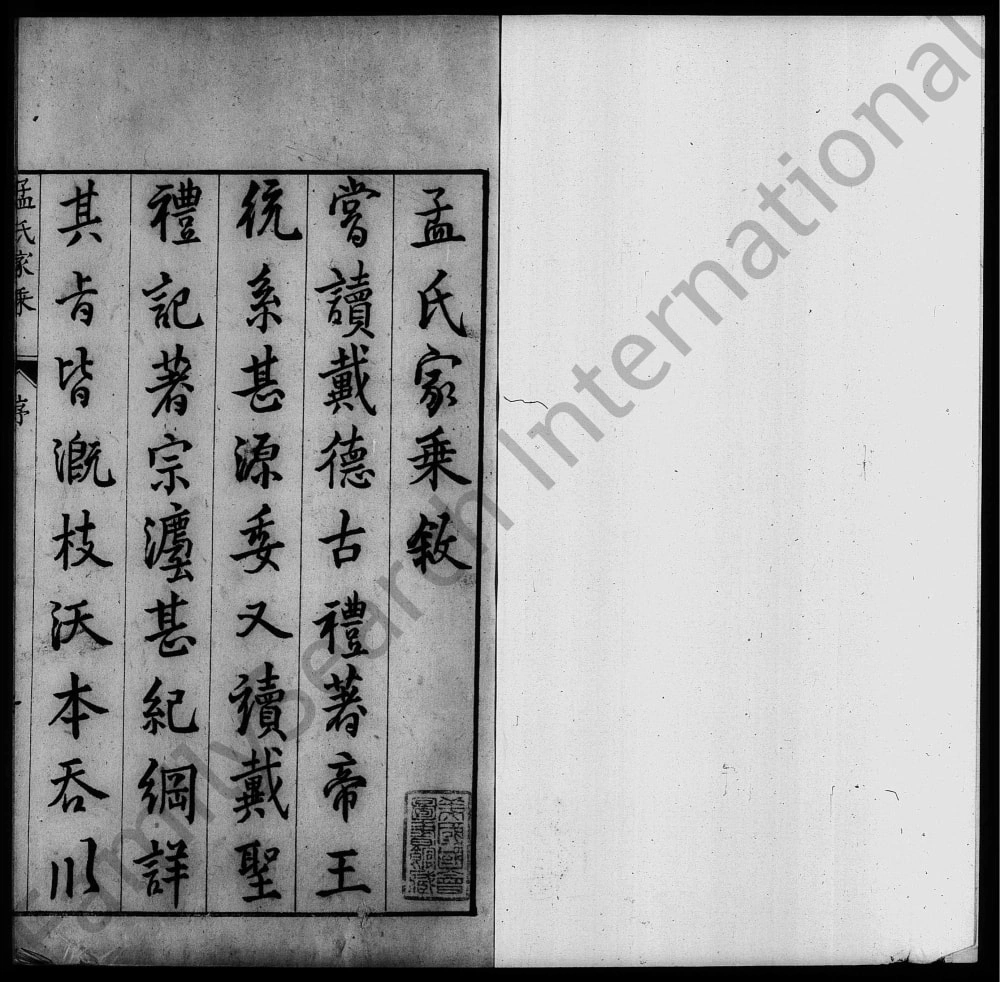 孟氏家乘敘
嘗讀戴德古禮著帝王
統系甚源委又讀戴聖
禮記著宗灋甚紀綱詳
其旨皆溉枝沃本吞川
孟氏家乘
序
美國國會
圖書館藏
FamilySearch International